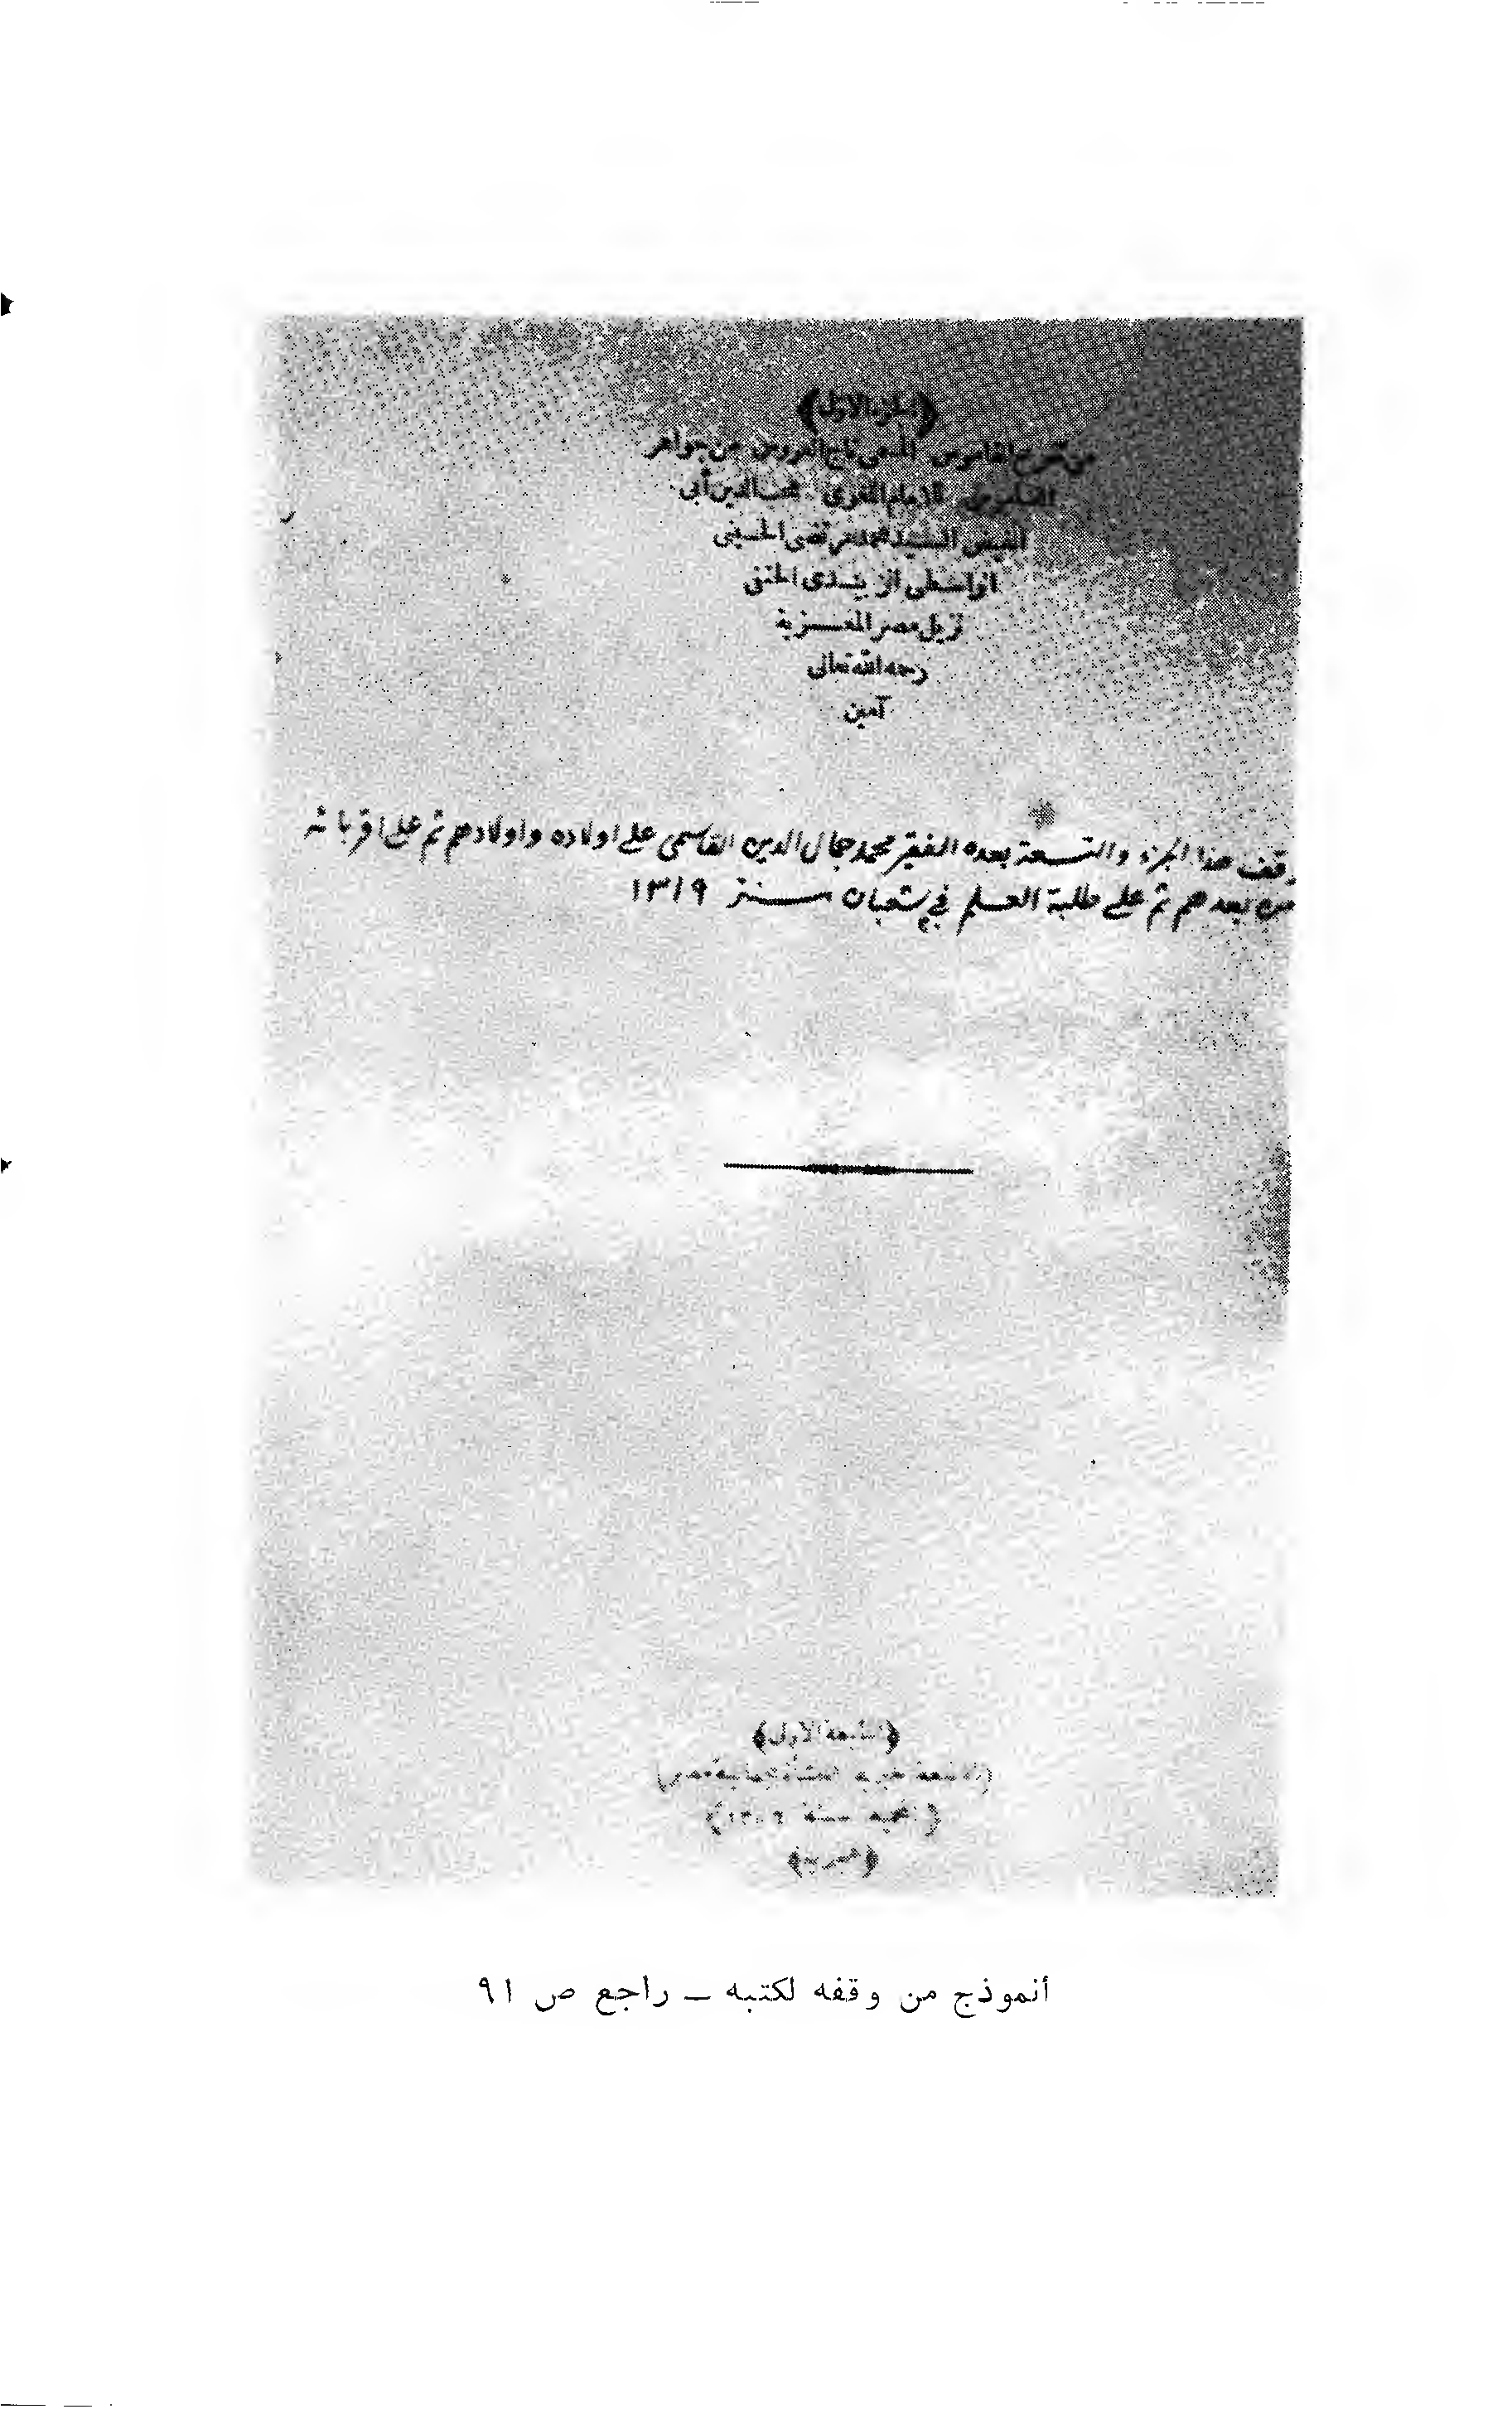 ﴿الجزء الاول﴾
من شرح القاموس المسمى تاج العروس من جواهر
القاموس للامام اللغوى محب الدين أبى
الفيض السيد محمد مرتضى الحسينى
الواسطى الزبيدى الحنفى
نزيل مصر المعزية
رحمه الله تعالى
آمين
وقف هذا الجزء والتسعة بعده الفقير محمد جمال الدين القاسمى على اولاده واولادهم ثم على اقربائه
من بعدهم ثم على طلبة العلم في شعبان سنة ١٣١٩
﴿الطبعة الاولى﴾
بالمطبعة الخيرية المنشأة بجمالية مصر
المحمية سنة ١٣٠٦
﴿هجرية﴾
أنموذج من وقفه لكتبه — راجع ص ٩١